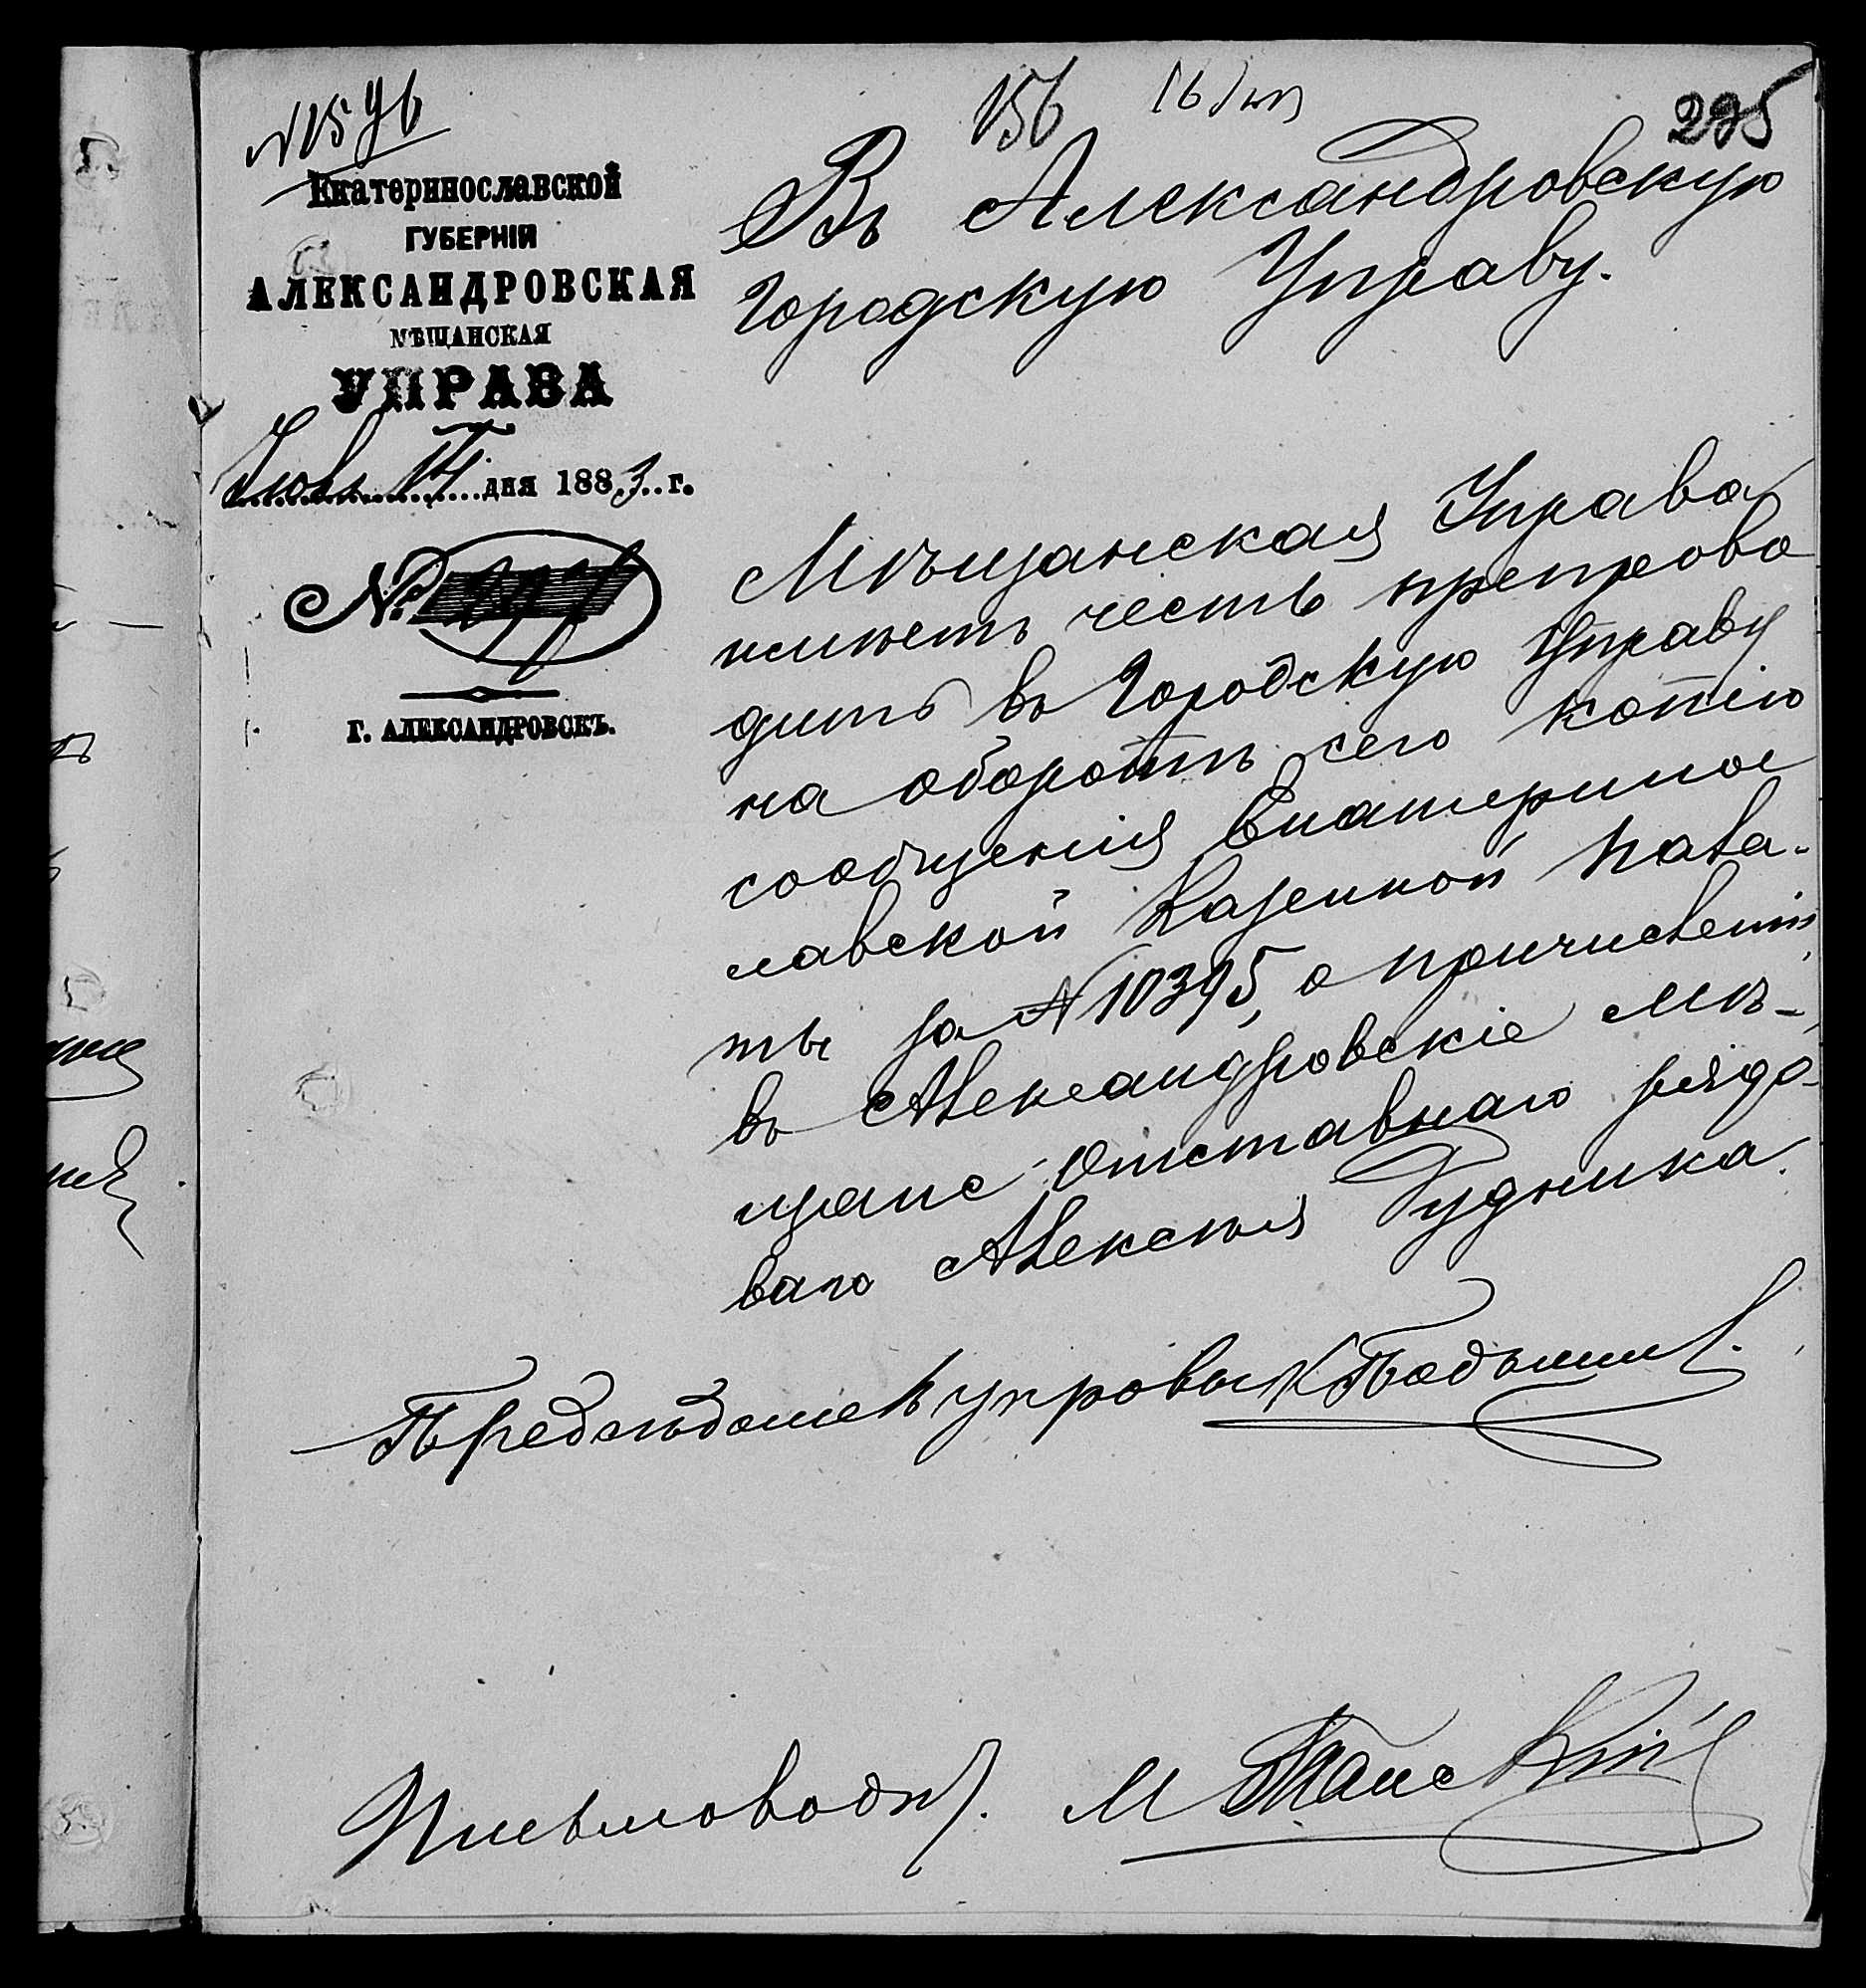 № 1596
156
295
Екатеринославской
ГУБЕРНІИ
АЛЕКСАНДРОВСКАЯ
МѢЩАНСКАЯ
УПРАВА
14 дня 1883 г.
№
Г. АЛЕКСАНДРОВСКЪ.
Въ Александровскую
Городскую Управу.
Мѣщанская Управа
имѣетъ честь препрово
дить въ Городскую Управу
на оборотѣ сего копію
сообщенія Екатеринос
лавской Казенной Пала-
ты за № 10395, о причисленіи
въ Александровскіе мѣ-
щане отставнаго рядо-
ваго Алексѣя Рудника.
Предсѣдатель управы
Письмоводит.